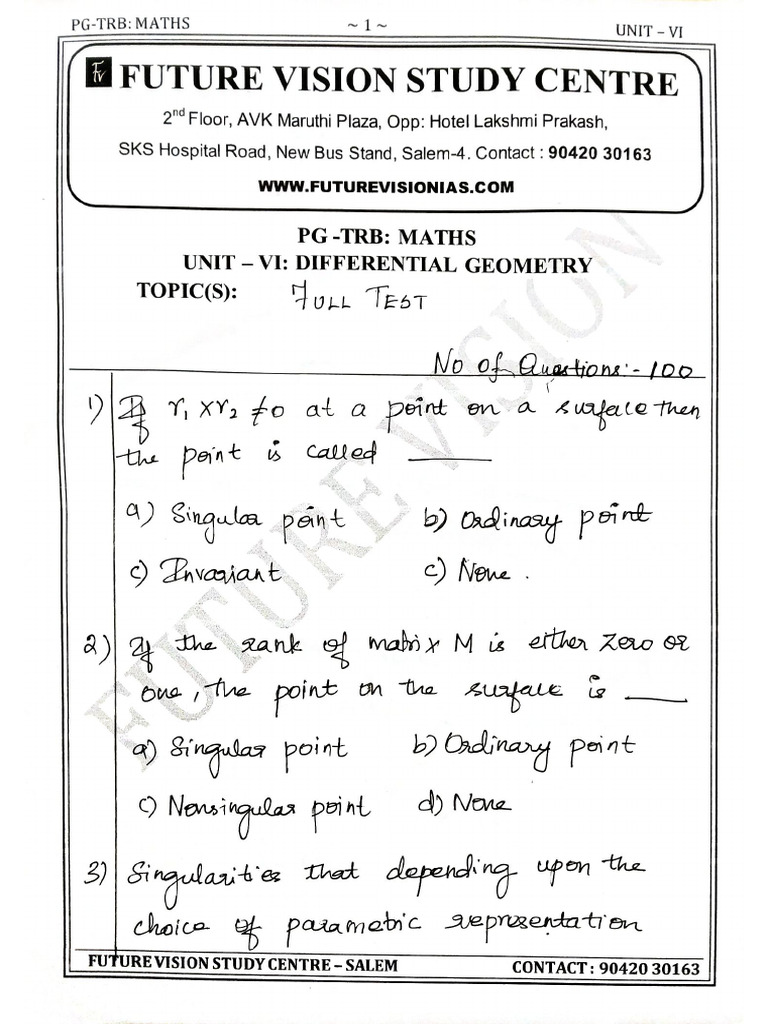 PG-TRB: MATHS ~ 1 ~ UNIT – VI
FV FUTURE VISION STUDY CENTRE
2nd Floor, AVK Maruthi Plaza, Opp: Hotel Lakshmi Prakash,
SKS Hospital Road, New Bus Stand, Salem-4. Contact : 90420 30163
WWW.FUTUREVISIONIAS.COM
PG -TRB: MATHS
UNIT – VI: DIFFERENTIAL GEOMETRY
TOPIC(S): FULL TEST
No of Questions:- 100
1) If r₁ × r₂ ≠ 0 at a point on a surface then
the point is called ______
a) Singular point b) Ordinary point
c) Invariant c) None .
2) If the rank of matrix M is either zero or
one, the point on the surface is ______
a) Singular point b) Ordinary point
c) Nonsingular point d) None
3) Singularities that depending upon the
choice of parametric representation
FUTURE VISION STUDY CENTRE – SALEM CONTACT : 90420 30163
FUTURE VISION